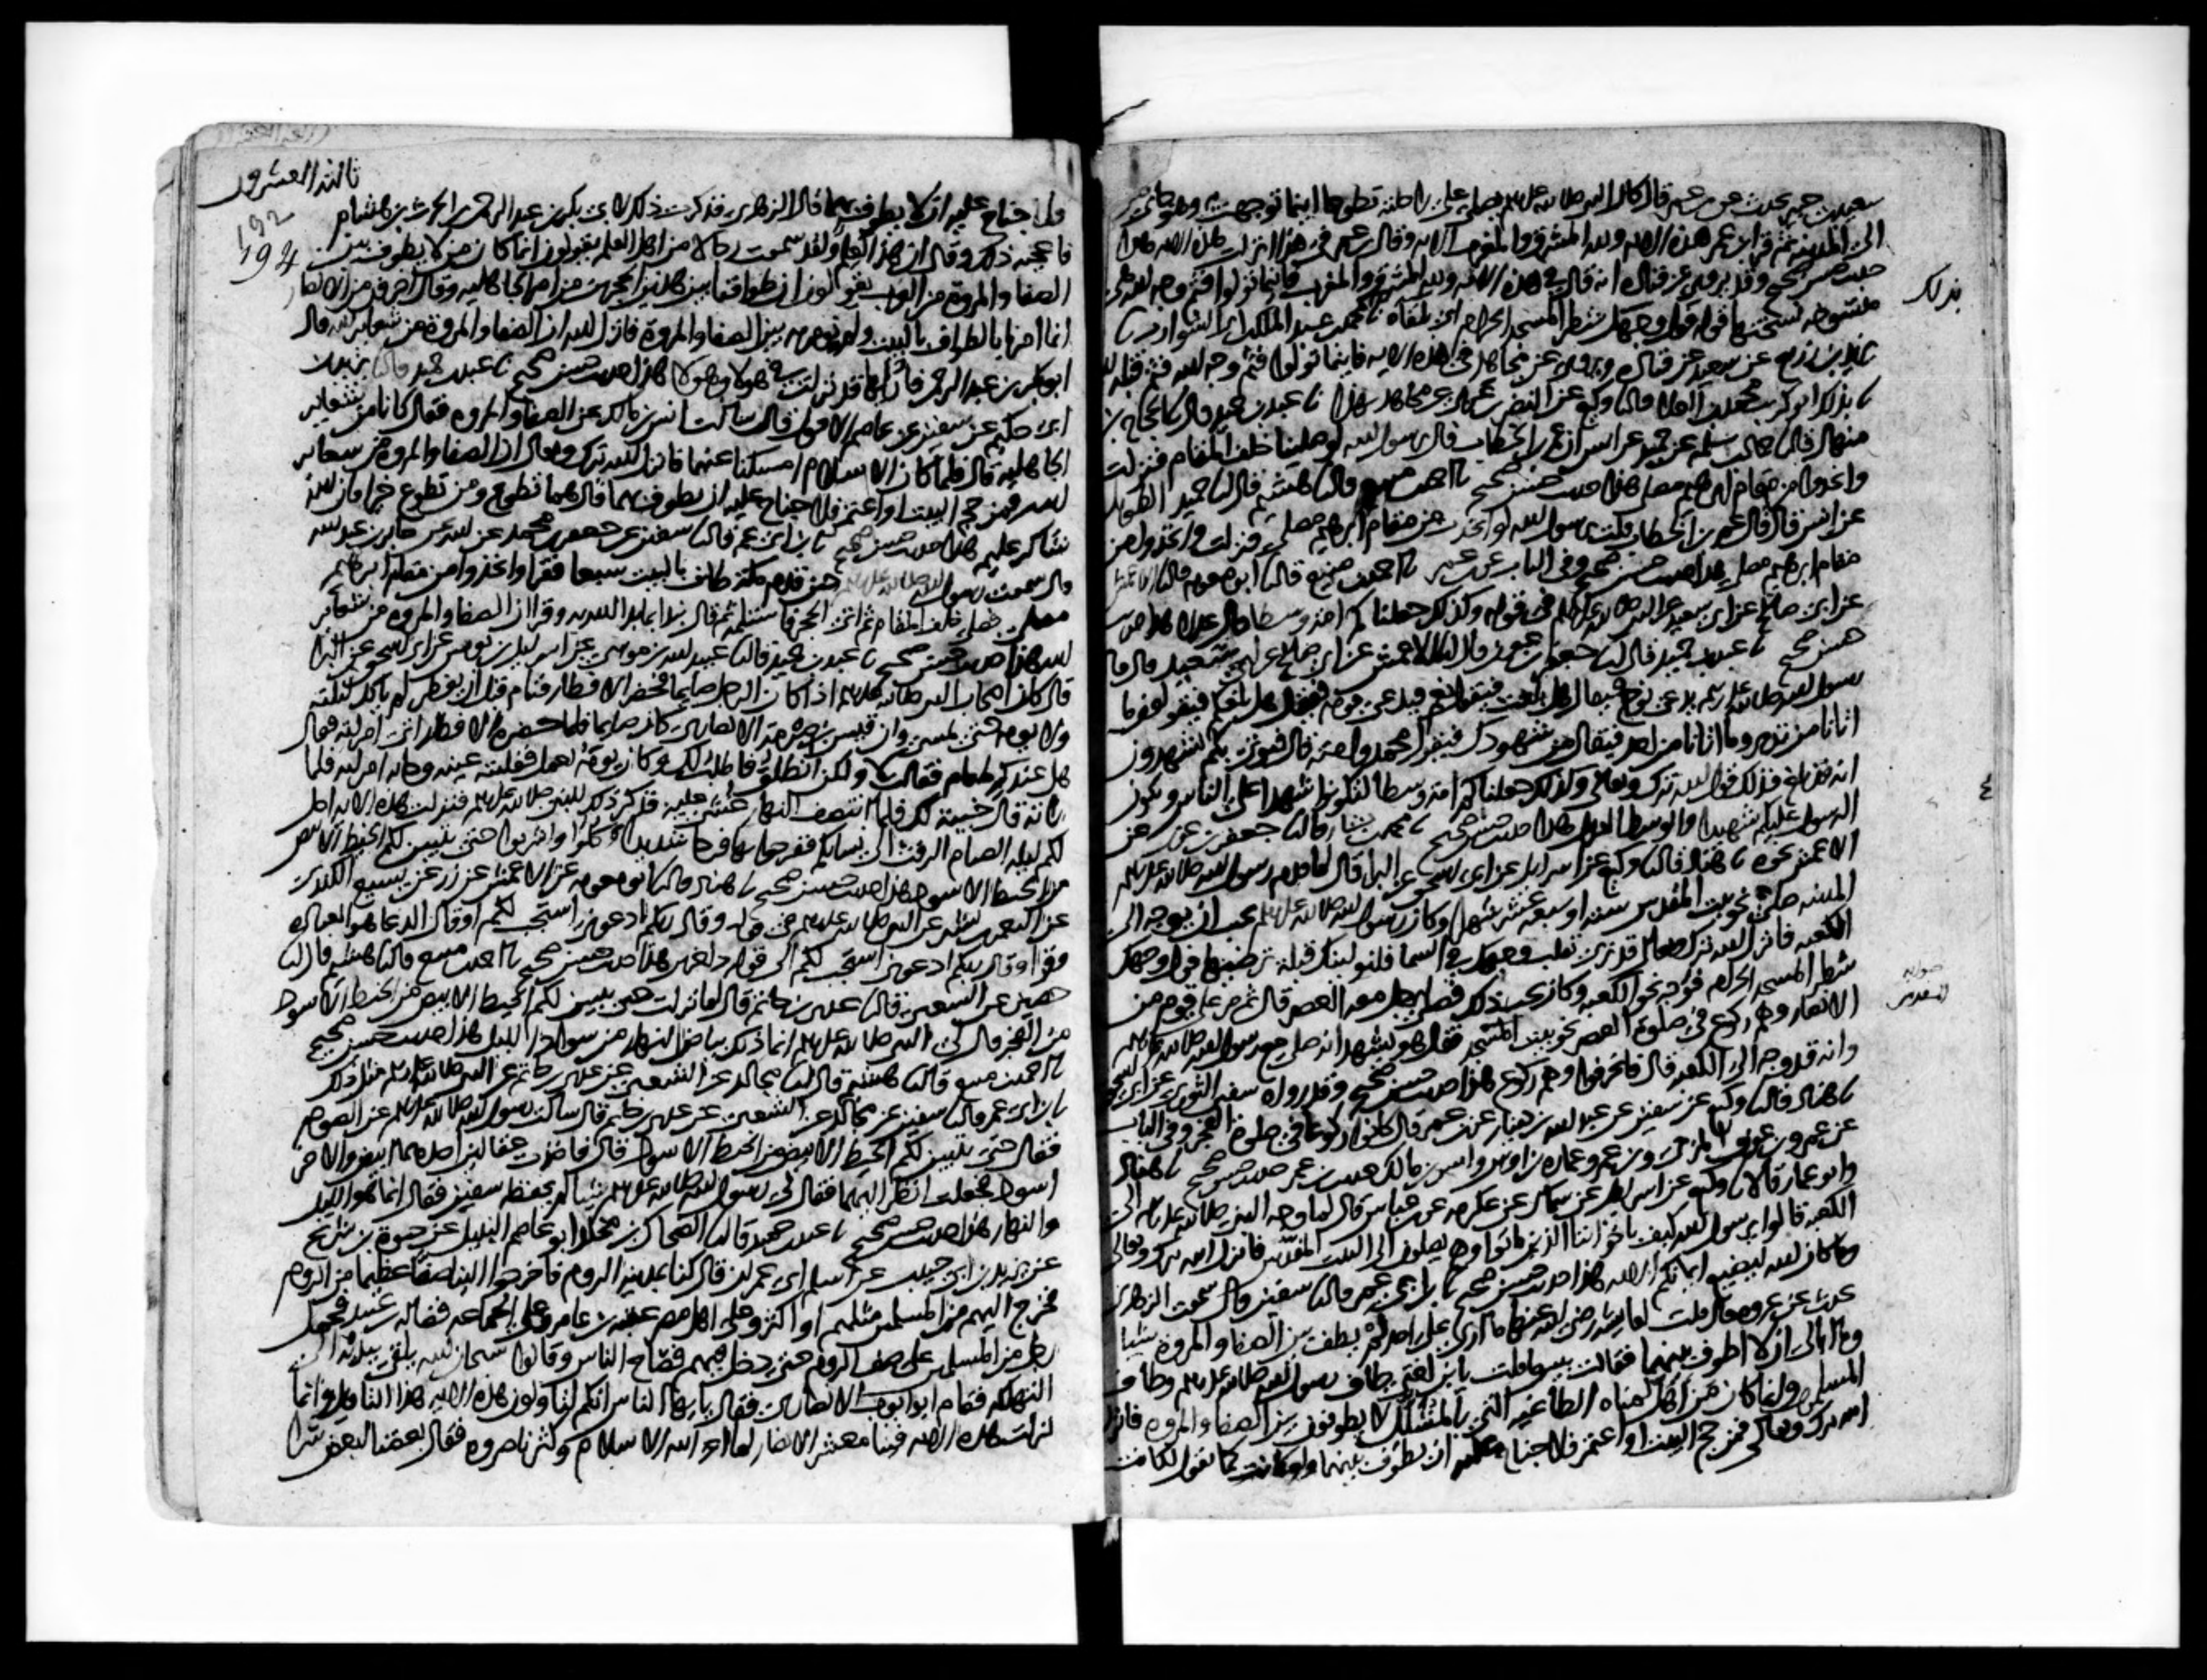 سعيد بن جبير يحدث عن بن عمر قال كان النبي صلى الله عليه وسلم يصلي على راحلته تطوعا اينما توجهت به وهو جاي من
الى المدينة ثم قرا بن عمر هذه الايه ولله المشرق والمغرب الايه وقال بن عمر في هذا انزلت هذه الايه هذا
حديث حسن صحيح وقد يروى عن قتاده انه قال في هذه الايه ولله المشرق والمغرب فاينما تولوا فثم وجه الله هي
منسوخه نسختها قوله فول وجهك شطر المسجد الحرام اي تلقاه نا محمد بن عبد الملك بن ابي الشوارب نا
يزيد بن زريع عن سعيد عن قتاده ويروى عن مجاهد في هذه الايه فاينما تولوا فثم وجه الله فثم قبله الله
نا بذلك ابو كريب محمد بن العلا قال نا وكيع عن النضر بن عربي عن مجاهد بهذا نا عبد بن حميد قال نا حجاج بن
منهال قال نا حماد بن سلمه عن حميد عن انس ان عمر بن الخطاب قال يرسول الله لو صلينا خلف المقام فنزلت
واتخذوا من مقام ابرهيم مصلى هذا حديث حسن صحيح نا احمد بن منيع قال نا هشيم قال نا حميد الطويل
عن انس قال قال عمر بن الخطاب قلت يرسول الله لو اتخذت من مقام ابرهيم مصلى فنزلت واتخذوا من
مقام ابرهيم مصلى هذا حديث حسن صحيح وفي الباب عن بن عمر نا احمد بن منيع قال نا ابو معويه قال نا الاعمش
عن ابي صالح عن ابي سعيد عن النبي صلى الله عليه وسلم في قوله وكذلك جعلناكم امة وسطا قال عدلا هذا حديث
حسن صحيح نا عبد بن حميد قال نا جعفر بن عون قال نا الاعمش عن ابي صالح عن ابي سعيد قال قال
رسول الله صلى الله عليه وسلم يدعى نوح فيقال هل بلغت فيقول نعم فيدعى قومه فيقال هل بلغكم فيقولون ما
اتانا من نذير وما اتانا من احد فيقال من شهودك فيقول محمد وامته قال فيوتى بكم تشهدون
انه قد بلغ فذلك قول الله تبرك وتعالى وكذلك جعلناكم امة وسطا لتكونوا شهدا على الناس ويكون
الرسول عليكم شهيدا والوسط العدل هذا حديث حسن صحيح نا محمد بن بشار قال نا جعفر بن عون عن
الاعمش نحوه نا هناد قال نا وكيع عن اسرايل عن ابي اسحق عن البرا قال لما قدم رسول الله صلى الله عليه وسلم
المدينه صلى نحو بيت المقدس سته او سبعه عشر شهرا وكان رسول الله صلى الله عليه وسلم يحب ان يوجه الى
الكعبه فانزل الله تبرك وتعالى قد نرى تقلب وجهك في السما فلنولينك قبلة ترضيها فول وجهك
شطر المسجد الحرام فوجه نحو الكعبه وكان يحب ذلك فصلى رجل معه العصر قال ثم مر على قوم من
الانصار وهم ركوع في صلوة العصر نحو بيت المقدس فقال هو يشهد انه صلى مع رسول الله صلى الله عليه وسلم
وانه قد وجه الى الكعبه قال فانحرفوا وهم ركوع هذا حديث حسن صحيح وقد رواه سفين الثوري عن ابي اسحق
نا هناد قال نا وكيع عن سفين عن عبد الله بن دينار عن بن عمر قال كانوا ركوعا في صلوة الفجر وفي الباب
عن عمرو بن عوف المزني وبن عمر وعماره بن اوس وانس بن مالك حديث بن عمر حديث حسن صحيح نا هناد
وابو عمار قالا نا وكيع عن اسرايل عن سماك عن عكرمه عن بن عباس قال لما وجه النبي صلى الله عليه وسلم الى
الكعبه قالوا يرسول الله كيف باخواننا الذين ماتوا وهم يصلون الى البيت المقدس فانزل الله تبرك وتعالى
وما كان الله ليضيع ايمانكم الايه هذا حديث حسن صحيح نا بن ابي عمر قال نا سفين قال سمعت الزهري
يحدث عن عروه قال قلت لعايشه رضي الله عنها ما ارى على احد لم يطف بين الصفا والمروة شيا
وما ابالي ان لا اطوف بينهما فقالت بيس ما قلت يا بن اختي طاف رسول الله صلى الله عليه وسلم وطاف
المسلمون وانما كان من اهل لمناه الطاغيه التي بالمشلل لا يطوفون بين الصفا والمروه فانزل
الله تبرك وتعالى فمن حج البيت او اعتمر فلا جناح عليه ان يطوف بينهما ولو كانت كما تقول لكانت
بذلك
٤
صوابه
المقدس
ثالثه العشرون
192
194
فلا جناح عليه ان لا يطوف بهما قال الزهري فذكرت ذلك لابي بكر بن عبد الرحمن بن الحرث بن هشام
فاعجبه ذلك وقال ان هذا العلم ولقد سمعت رجالا من اهل العلم يقولون انما كان من لا يطوف بين
الصفا والمروة من العرب يقولون ان طوافنا بين هذين الحجرين من امر الجاهليه وقال اخرون من الانصار
انما امرنا بالطواف بالبيت ولم نومر به بين الصفا والمروة فانزل الله ان الصفا والمروة من شعاير الله قال
ابو بكر بن عبد الرحمن فاراها قد نزلت في هولا وهولا هذا حديث حسن صحيح نا عبد بن حميد قال نا يزيد بن
ابي حكيم عن سفين عن عاصم الاحول قال سالت انس بن مالك عن الصفا والمروه فقال كانا من شعاير
الجاهليه قال فلما كان الاسلام امسكنا عنهما فانزل الله تبرك وتعالى ان الصفا والمروه من شعاير
الله فمن حج البيت او اعتمر فلا جناح عليه ان يطوف بهما قال هما تطوع ومن تطوع خيرا فان الله
شاكر عليم هذا حديث حسن صحيح نا بن ابي عمر قال نا سفين عن جعفر بن محمد عن ابيه عن جابر بن عبد الله
قال سمعت رسول الله صلى الله عليه وسلم حين قدم مكة طاف بالبيت سبعا فقرا واتخذوا من مقام ابرهيم
مصلى فصلى خلف المقام ثم اتى الحجر فاستلمه ثم قال نبدا بما بدا الله به وقرا ان الصفا والمروه من شعاير
الله هذا حديث حسن صحيح نا عبد بن حميد قال نا عبيد الله بن موسى عن اسرايل بن يونس عن ابي اسحق عن البرا
قال كان اصحاب النبي صلى الله عليه وسلم اذا كان الرجل صايما فحضر الافطار فنام قبل ان يفطر لم ياكل ليلته
ولا يومه حتى يمسي وان قيس بن صرمة الانصاري كان صايما فلما حضره الافطار اتى امراته فقال
هل عندك طعام فقالت لا ولكن انطلق فاطلب لك وكان يومه يعمل فغلبته عينه وجاته امراته فلما
راته قالت خيبة لك فلما انتصف النهار غشي عليه فذكر ذلك للنبي صلى الله عليه وسلم فنزلت هذه الايه احل
لكم ليله الصيام الرفث الى نسايكم ففرحوا بها فرحا شديدا وكلوا واشربوا حتى يتبين لكم الخيط الابيض
من الخيط الاسود هذا حديث حسن صحيح نا هناد قال نا ابو معويه عن الاعمش عن زر عن يسيع الكندي
عن النعمن بن بشير عن النبي صلى الله عليه وسلم في قوله وقال ربكم ادعوني استجب لكم قال الدعا هو العباده
وقرا وقال ربكم ادعوني استجب لكم الى قوله داخرين هذا حديث حسن صحيح نا احمد بن منيع قال نا هشيم قال نا
حصين عن الشعبي قال نا عدي بن حاتم قال لما نزلت حتى يتبين لكم الخيط الابيض من الخيط الاسود
من الفجر قال لي النبي صلى الله عليه وسلم انما ذلك بياض النهار من سواد الليل هذا حديث حسن صحيح
نا احمد بن منيع قال نا هشيم قال نا مجالد عن الشعبي عن عدي بن حاتم عن النبي صلى الله عليه وسلم مثل ذلك
نا بن ابي عمر قال نا سفين عن مجالد عن الشعبي عن عدي بن حاتم قال سالت رسول الله صلى الله عليه وسلم عن الصوم
فقال حتى يتبين لكم الخيط الابيض من الخيط الاسود قال فاخذت عقالين احدهما ابيض والاخر
اسود فجعلت انظر اليهما فقال لي رسول الله صلى الله عليه وسلم شيا لم يحفظه سفين فقال انما هو الليل
والنهار هذا حديث حسن صحيح نا عبد بن حميد قال نا الضحاك بن مخلد ابو عاصم النبيل عن حيوة بن شريح
عن يزيد بن ابي حبيب عن اسلم ابي عمران قال كنا بمدينه الروم فاخرجوا الينا صفا عظيما من الروم
فخرج اليهم من المسلمين مثلهم او اكثر وعلى اهل مصر عقبه بن عامر وعلى الجماعه فضاله بن عبيد فحمل
رجل من المسلمين على صف الروم حتى دخل فيهم فصاح الناس وقالوا سبحان الله يلقي بيديه الى
التهلكه فقام ابو ايوب الانصاري فقال يايها الناس انكم لتاولون هذه الايه هذا التاويل وانما
نزلت هذه الايه فينا معشر الانصار لما اعز الله الاسلام وكثر ناصروه فقال بعضنا لبعض سرا